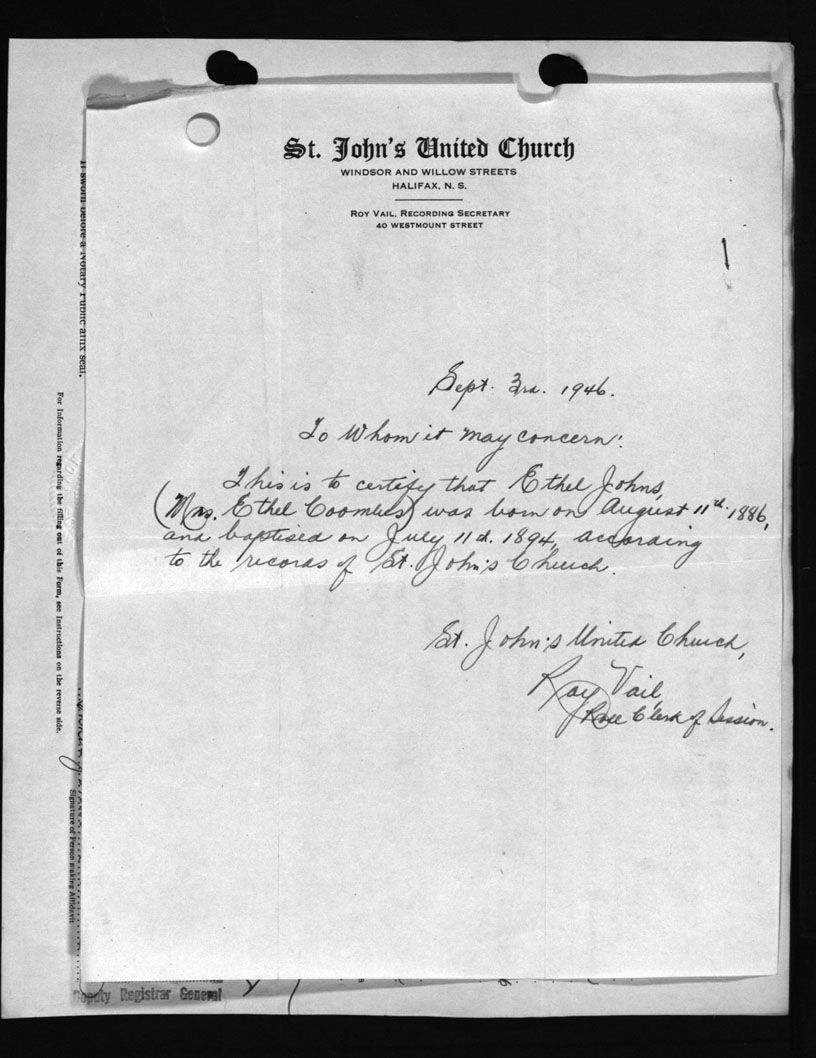 St. John's United Church
WINDSOR AND WILLOW STREETS
HALIFAX, N. S.
ROY VAIL, RECORDING SECRETARY
40 WESTMOUNT STREET
Sept. 3rd. 1946.
To Whom it may concern:
This is to certify that Ethel Johns,
(Mrs. Ethel Coombes) was born on August 11th. 1886,
and baptised on July 11th. 1894, according
to the records of St. John's Church.
St. John's United Church,
Roy Vail
Clerk of Session.
If sworn before a Notary Public affix seal.
For Information regarding the filling out of this Form, see Instructions on the reverse side.
Signature of Person making Affidavit
Deputy Registrar General